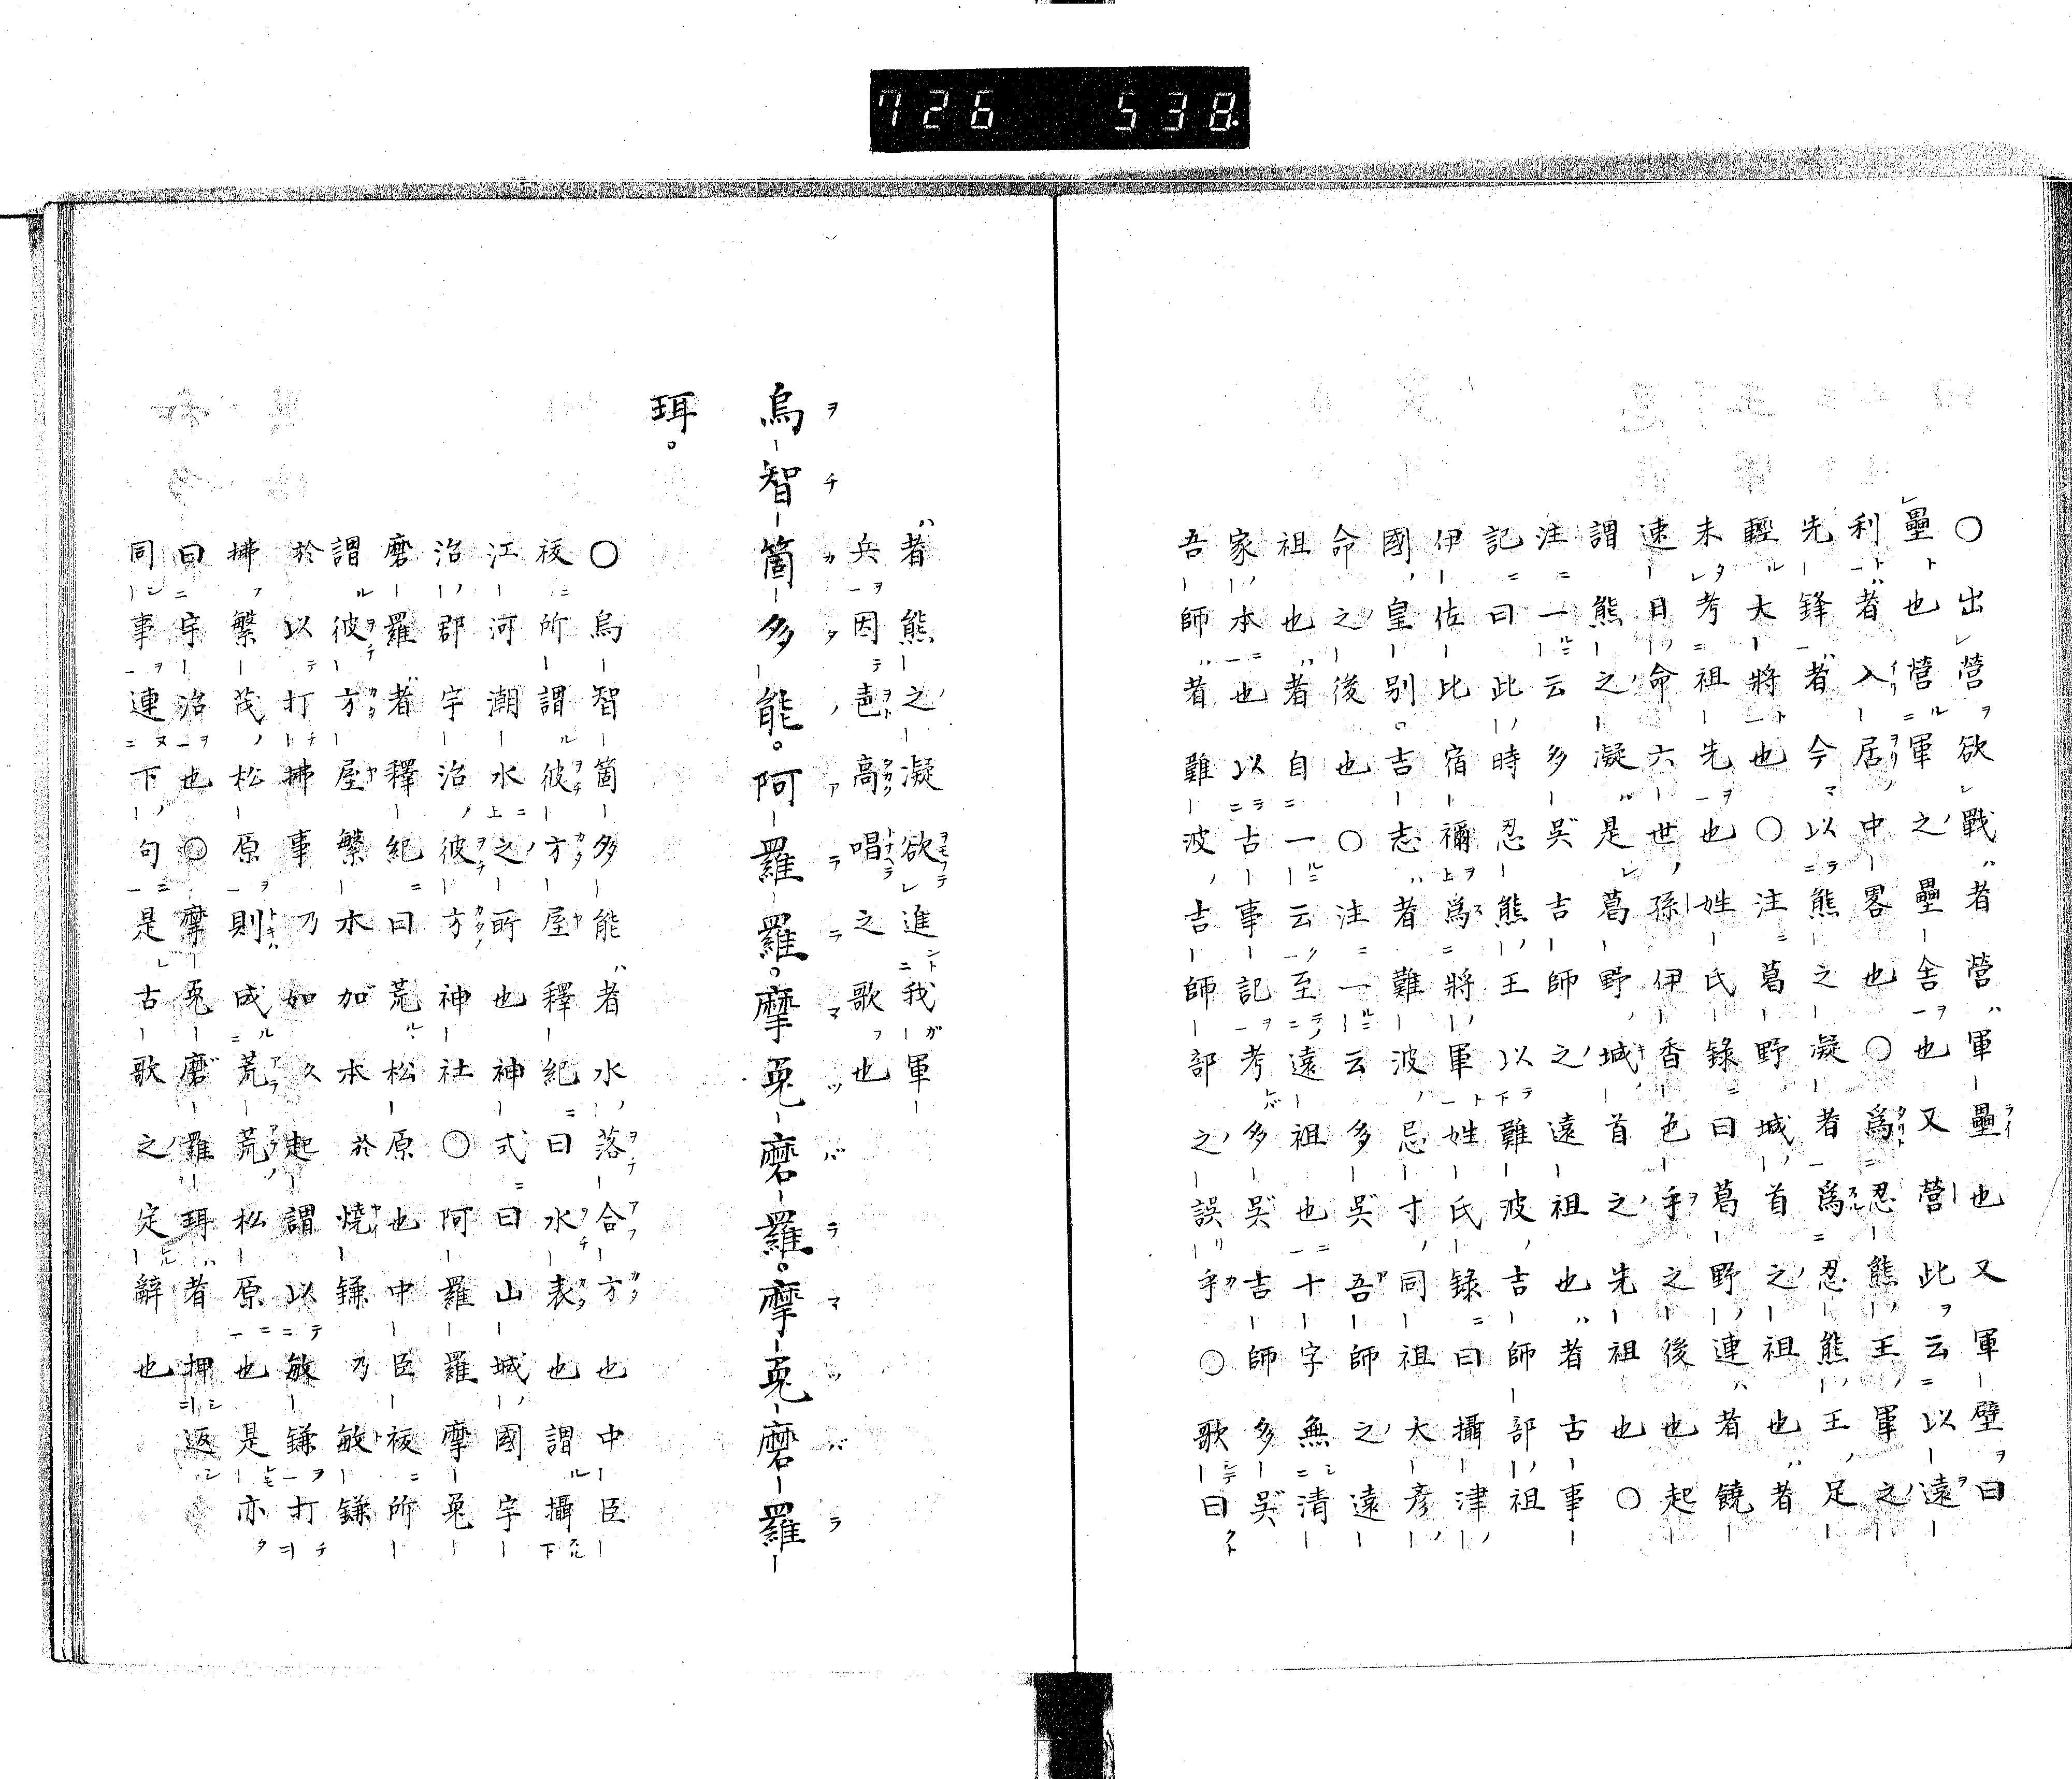 726 538
〇出營欲戰者營軍壘也又軍壁曰
壘也營軍之壘舍也又營此云以遠
利者入居中畧也〇爲忍熊王軍之
先鋒者今以熊之凝者爲忍熊王足
輕大將也〇注葛野城首之祖也者
未考祖先也姓氏錄曰葛野連者饒
速日命六世孫伊香色乎之後也起
謂熊之凝是葛野城首之先祖也〇
注一云多吳吉師之遠祖也者古事
記曰此時忍熊王以難波吉師部祖
伊佐比宿禰爲將軍姓氏錄曰攝津
國皇別吉志者難波忌寸同祖大彥
命之後也〇注一云多吳吾師之遠
祖也者自一云至遠祖也十字無清
家本也以古事記考多吳吉師多吳
吾師者難波吉師部之誤乎〇歌曰
者熊之凝欲進我軍
兵因𠷎高唱之歌也
烏智箇多能阿羅羅摩菟磨羅摩菟磨羅
珥
〇烏智箇多能者水落合方也中臣
祓所謂彼方屋釋紀曰水表也謂攝
江河潮水之所也神式曰山城國宇
治郡宇治彼方神社〇阿羅羅摩菟
磨羅者釋紀曰荒松原也中臣祓所
謂彼方屋繁木加本於燒鎌乃敏鎌
於以打拂事乃如久起謂以敏鎌打
拂繁茂松原則成荒荒松原也是亦
曰宇治也〇摩菟磨羅珥者押返
同事連下句是古歌之定辭也